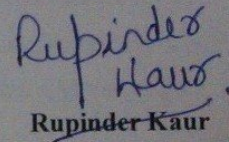 Rupinder
Kaur
Rupinder Kaur